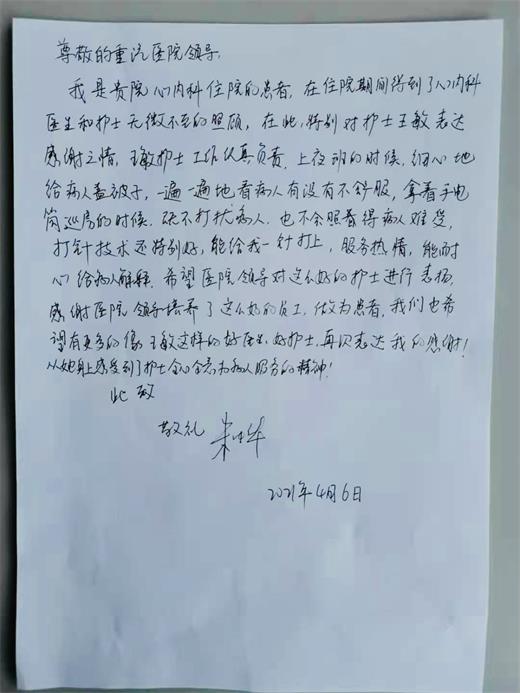 尊敬的重汽医院领导,
我是贵院心内科住院的患者,在住院期间得到了心内科
医生和护士无微不至的照顾,在此,特别对护士王敏表达
感谢之情,王敏护士工作认真负责,上夜班的时候,细心地
给病人盖被子,一遍一遍地看病人有没有不舒服,拿着手电
筒巡房的时候,既不打扰病人,也不会照着得病人难受,
打针技术还特别好,能给我一针打上,服务热情,能耐
心给病人解释,希望医院领导对这么好的护士进行表扬,
感谢医院领导培养了这么好的员工,做为患者,我们也希
望有更多的像王敏这样的好医生、好护士,再次表达我的感谢!
从她身上感受到了护士全心全意为病人服务的精神!
此致
敬礼 朱华
2021年4月6日